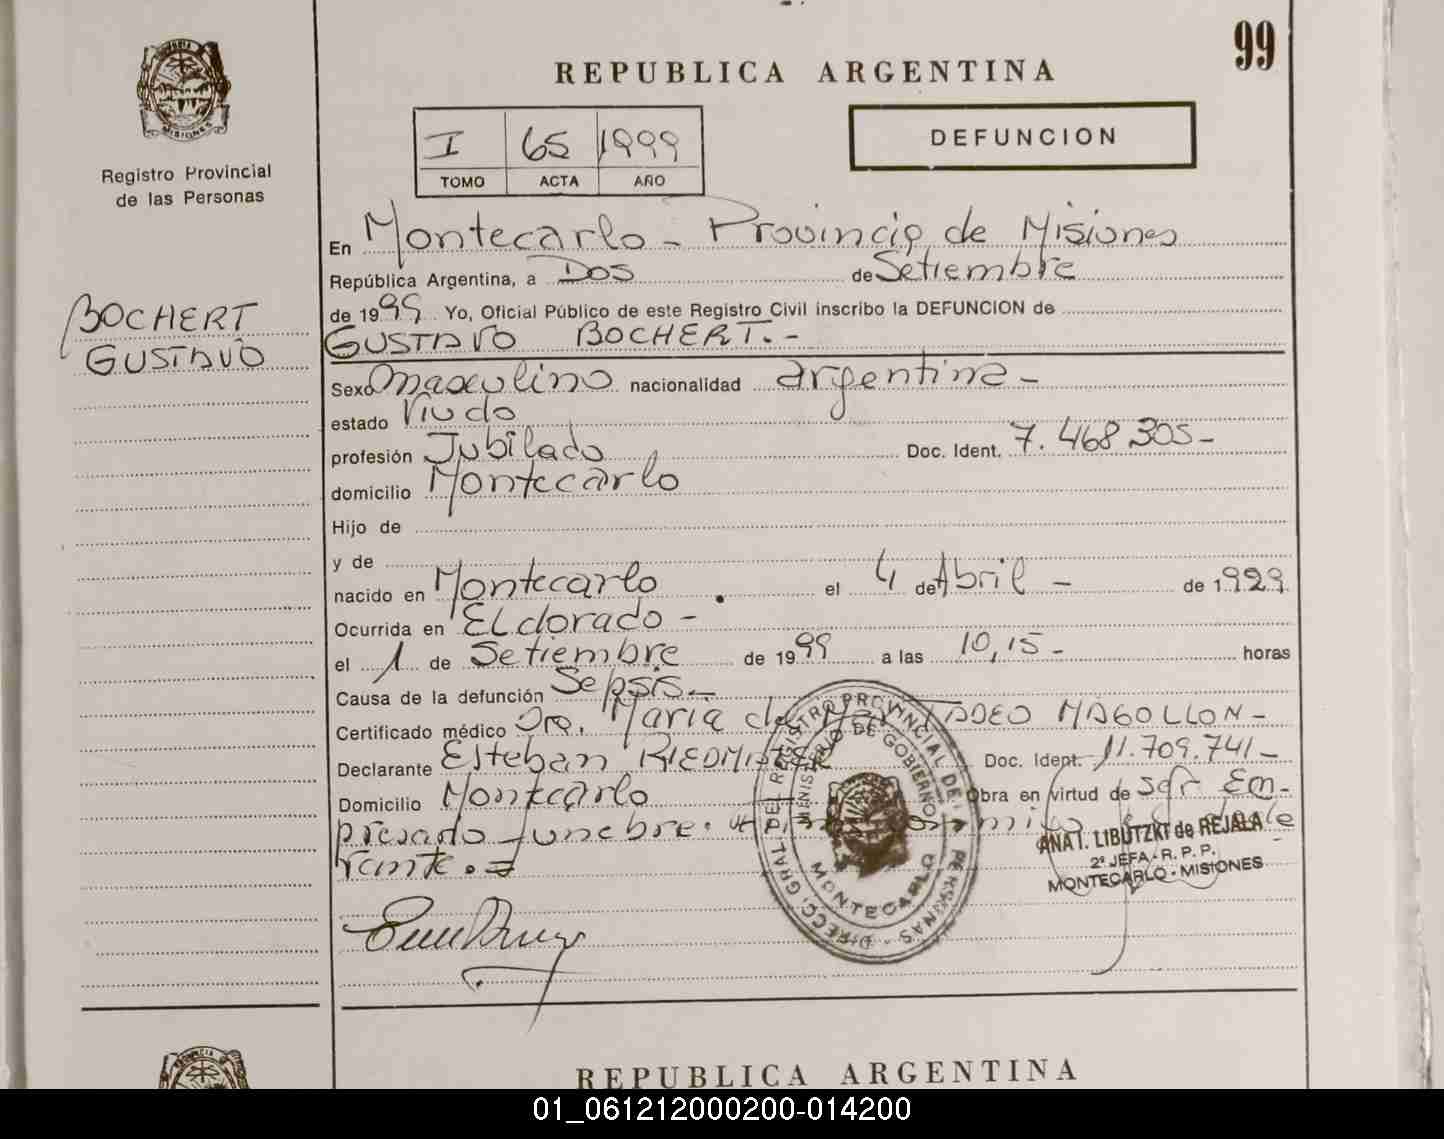 99
REPUBLICA ARGENTINA
I 65 1999
TOMO ACTA AÑO
DEFUNCION
MISIONES
Registro Provincial
de las Personas
BOCHERT
GUSTAVO
En Montecarlo - Provincia de Misiones
República Argentina, a Dos de Setiembre
de 1999 Yo, Oficial Público de este Registro Civil inscribo la DEFUNCION de
GUSTAVO BOCHERT.-
Sexo masculino nacionalidad argentina -
estado Viudo
profesión Jubilado Doc. Ident. 7.468.305-
domicilio Montecarlo
Hijo de
y de
nacido en Montecarlo el 4 de Abril - de 1929
Ocurrida en Eldorado -
el 1 de Setiembre de 1999 a las 10,15 - horas
Causa de la defunción Sepsis -
Certificado médico Dra. Maria del TADEO MAGOLLON -
Declarante Esteban RIEDMAIER Doc. Ident. 11.709.741 -
Domicilio Montecarlo Obra en virtud de ser Em-
presario funebre. conmigo el decla
rante. =
DIRECC. GRAL DEL REGISTRO PROVINCIAL DE LA PERSONAS
MINISTERIO DE GOBIERNO
MONTECARLO
ANA I. LIBUTZKI de REJALA
2ª JEFA - R. P. P.
MONTECARLO - MISIONES
PROVINCIA
REPUBLICA ARGENTINA
01_061212000200-014200